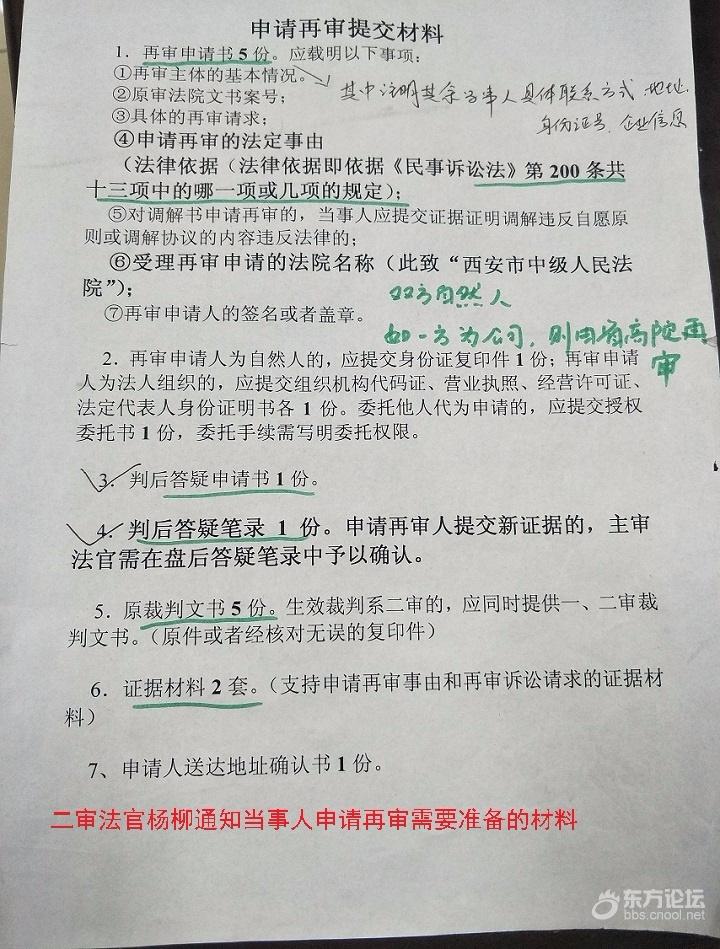 申请再审提交材料
1．再审申请书5份。应载明以下事项：
①再审主体的基本情况。
②原审法院文书案号；
其中注明其余当事人具体联系方式、地址、
③具体的再审请求；
身份证号、企业信息
④申请再审的法定事由
（法律依据（法律依据即依据《民事诉讼法》第200条共
十三项中的哪一项或几项的规定）；
⑤对调解书申请再审的，当事人应提交证据证明调解违反自愿原
则或调解协议的内容违反法律的；
⑥受理再审申请的法院名称（此致“西安市中级人民法
院”）；
双方自然人
⑦再审申请人的签名或者盖章。
如一方为公司，则由省高院再
审
2．再审申请人为自然人的，应提交身份证复印件1份；再审申请
人为法人组织的，应提交组织机构代码证、营业执照、经营许可证、
法定代表人身份证明书各1份。委托他人代为申请的，应提交授权
委托书1份，委托手续需写明委托权限。
3．判后答疑申请书1份。
4．判后答疑笔录1份。申请再审人提交新证据的，主审
法官需在盘后答疑笔录中予以确认。
5．原裁判文书5份。生效裁判系二审的，应同时提供一、二审裁
判文书。（原件或者经核对无误的复印件）
6．证据材料2套。（支持申请再审事由和再审诉讼请求的证据材
料）
7、申请人送达地址确认书1份。
二审法官杨柳通知当事人申请再审需要准备的材料
东方论坛
bbs.cnool.net